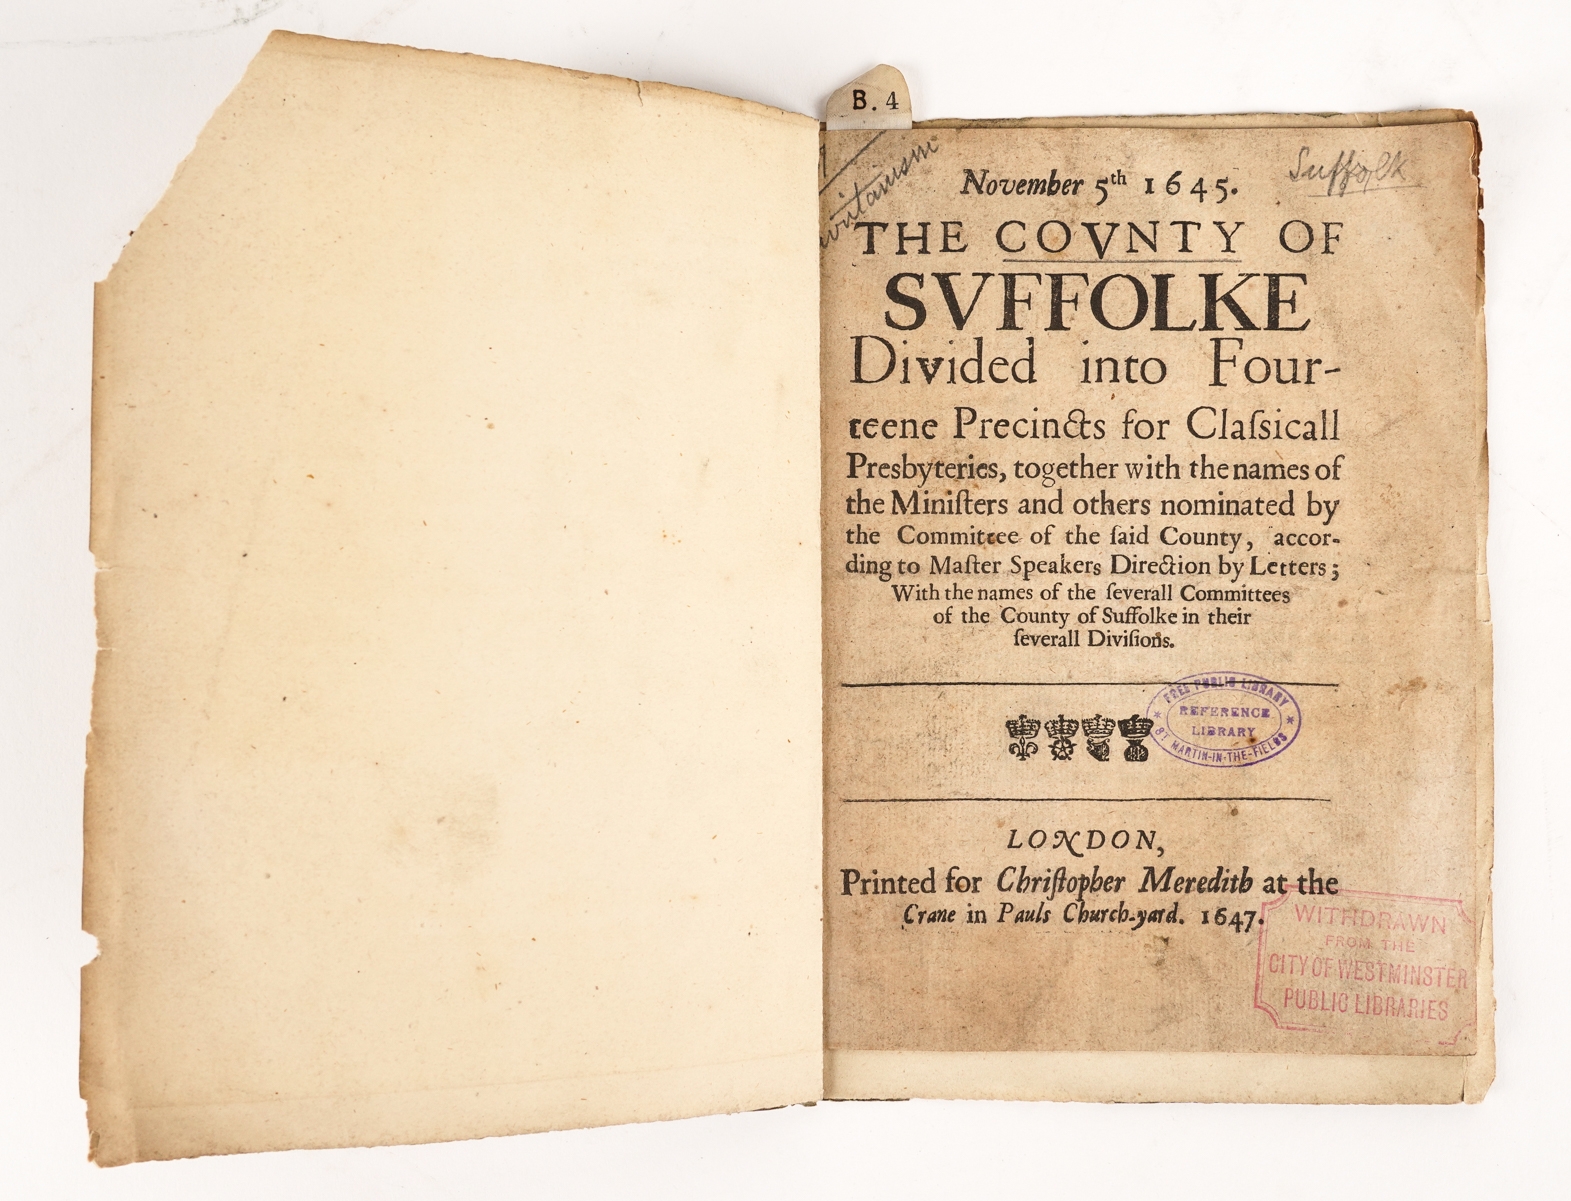 B. 4
Suffolk
November 5th 1645.
THE COVNTY OF
SVFFOLKE
Divided into Four-
teene Precincts for Claſsicall
Presbyteries, together with the names of
the Miniſters and others nominated by
the Committee of the ſaid County, accor-
ding to Maſter Speakers Direction by Letters;
With the names of the ſeverall Committees
of the County of Suffolke in their
ſeverall Diviſions.
FREE PUBLIC LIBRARY
REFERENCE
LIBRARY
ST MARTIN-IN-THE-FIELDS
LONDON,
Printed for Chriſtopher Meredith at the
Crane in Pauls Church-yard. 1647.
WITHDRAWN
FROM THE
CITY OF WESTMINSTER
PUBLIC LIBRARIES